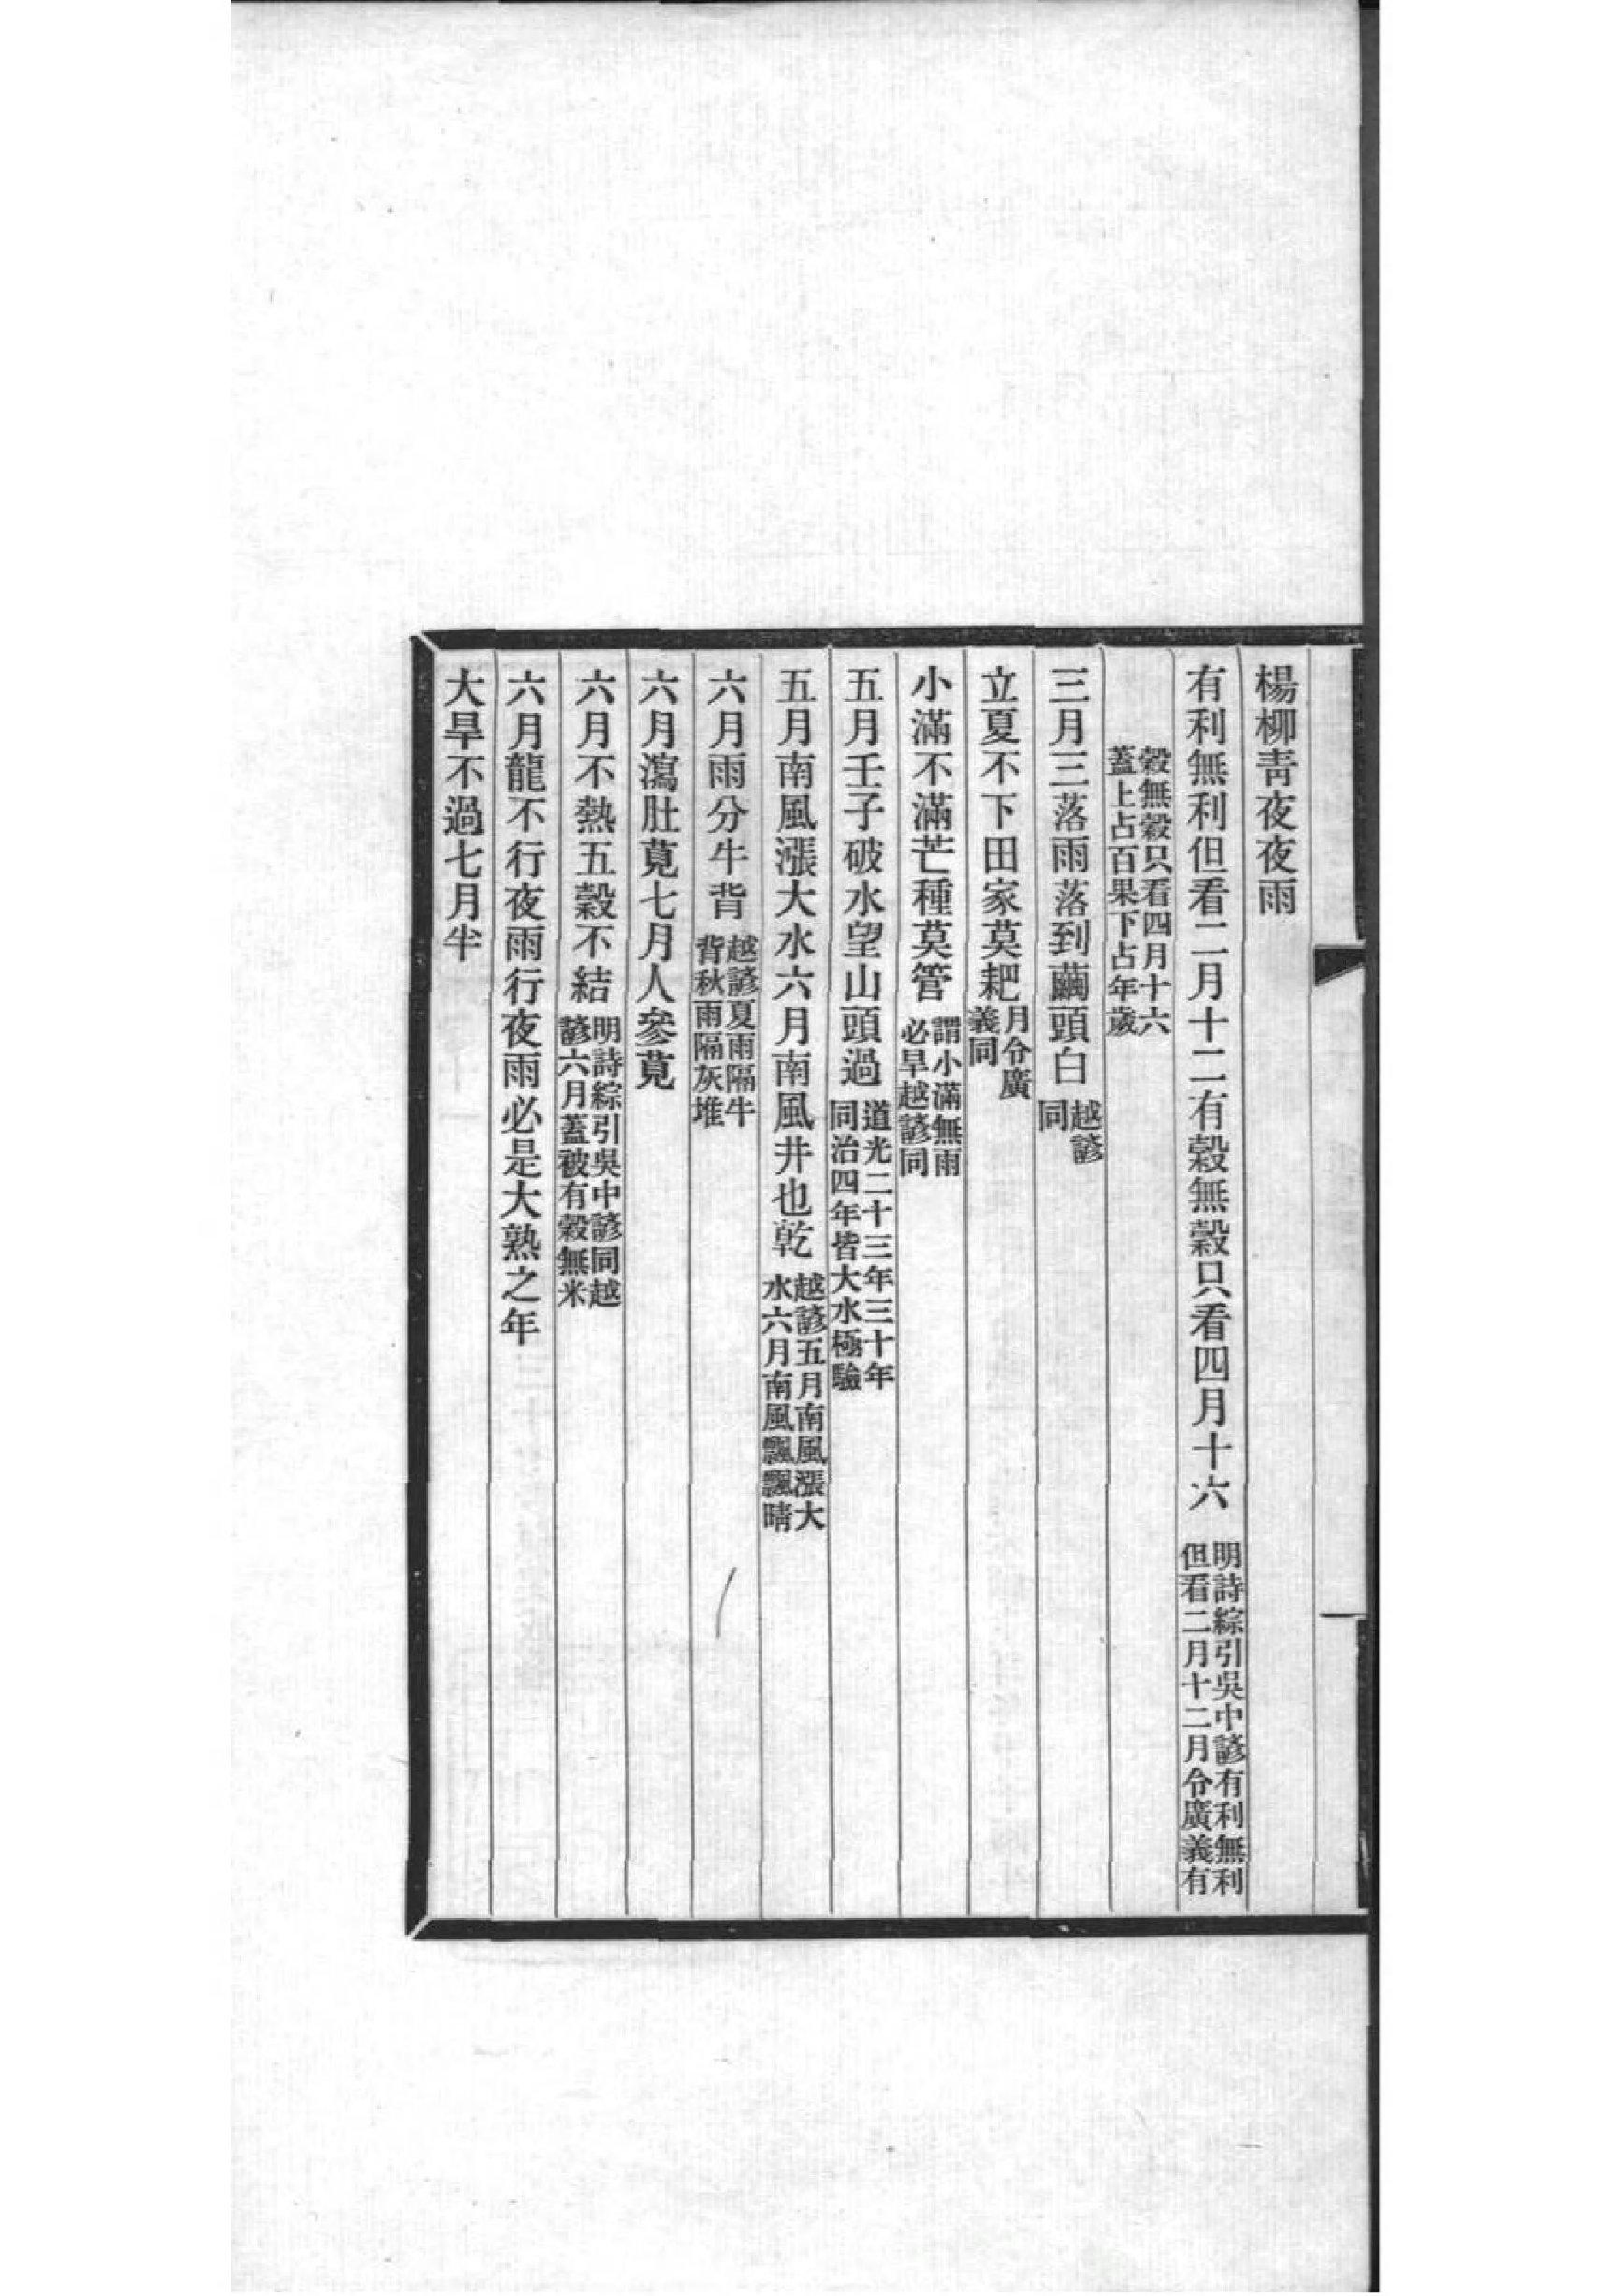 楊柳青夜夜雨
有利無利但看二月十二有穀無穀只看四月十六明詩綜引吳中諺有利無利但看二月十二月令廣義有
穀無穀只看四月十六蓋上占百果下占年歲
三月三落雨落到繭頭白越諺同
立夏不下田家莫耙月令廣義同
小滿不滿芒種莫管謂小滿無雨必旱越諺同
五月壬子破水望山頭過道光二十三年三十年同治四年皆大水極驗
五月南風漲大水六月南風井也乾越諺五月南風漲大水六月南風飄飄晴
六月雨分牛背越諺夏雨隔牛背秋雨隔灰堆
六月瀉肚莧七月人參莧
六月不熱五穀不結明詩綜引吳中諺同越諺六月蓋被有穀無米
六月龍不行夜雨行夜雨必是大熟之年
大旱不過七月半